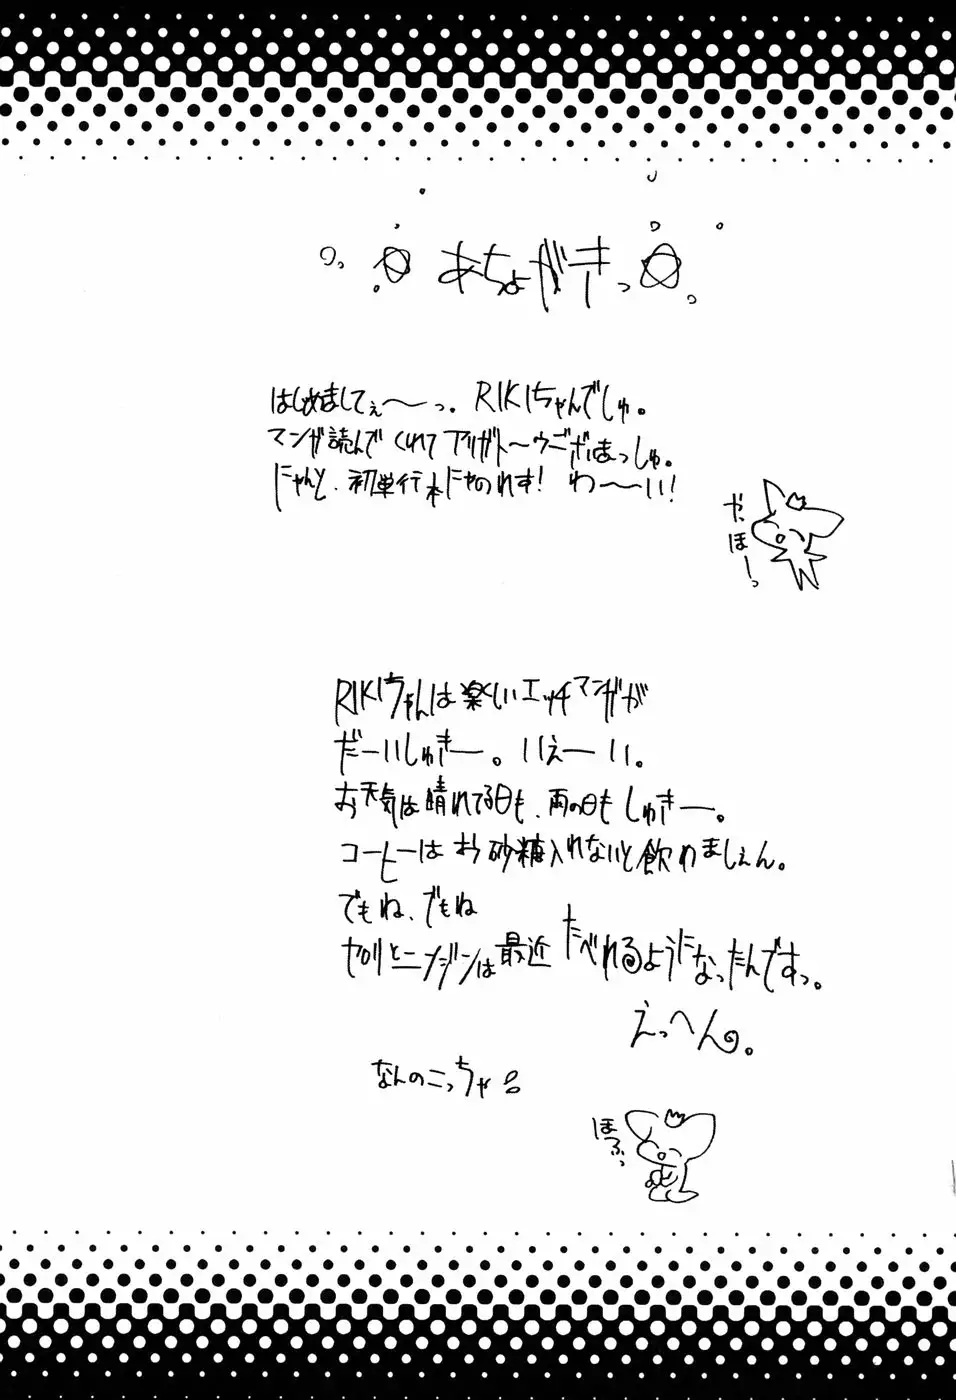 あちょがきっ
はじめましてぇ〜っ。RIKIちゃんでしゅ。
マンガ読んでくれてアリガト〜ウございまっしゅ。
にゃんと、初単行本にゃのれす！わ〜い！
やっほーっ
RIKIちゃんは楽しいエッチマンガが
だーいしゅきー。いぇーい。
お天気は晴れてる日も、雨の日もしゅきー。
コーヒーはお砂糖入れないと飲めましぇん。
でもね、でもね
セロリとニンジンは最近たべれるようになったんですっ。
えっへん。
なんのこっちゃ
ほふっ